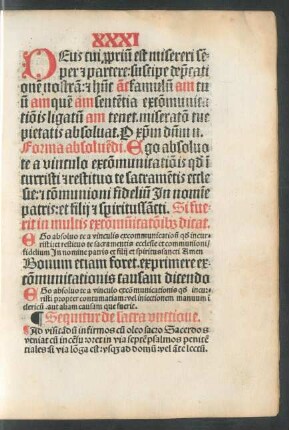 XXXI
DEus cui ꝓpriũ est misereri sẽ
per ⁊ parcere: suscipe dep̃cati
onẽ nostrã: ⁊ hũc aut́ famulũ am tu
ũ am quẽ am sentẽtia excõmunica
tiõis ligatũ am tenet. miseratõ tue
pietatis absoluat. P xp̃m dñm n.
Forma absoluẽdi. Ego absoluo
te a vinculo excõmunicatiõnis qd̃ ĩ
curristi ⁊ restituo te sacramẽtis eccle
sie: ⁊ cõmunioni fideliũ In nomĩe
patris: et filij ⁊ spiritussãcti. Si fue
rit in multis excõmũicatõibꝰ dicat.
EGo absoluo te a vinculis excommunicationũ qõs incur
risti: et restituo te sacramentis ecclesie et communioni
fidelium In nomine patris et filij et spiritus sancti Amen
Bonum etiam foret. exprimere ex
cõmunicationis causam dicendo
EGo absoluo te a vinculo excõmunicationis qõ incur
risti propter contumatiam: vel iniectionem manuum ĩ
clericũ aut aliam causam que fuerit.
¶ Sequitur de sacra vnctione.
¶ Ad visitãdũ infirmos cũ oleo sacro Sacerdos
veniat cũ in cẽsu: foret in via septẽ psalmos peniten
tiales si via lõga est: vsqꝫ ad domũ: vel ãte lectũ.